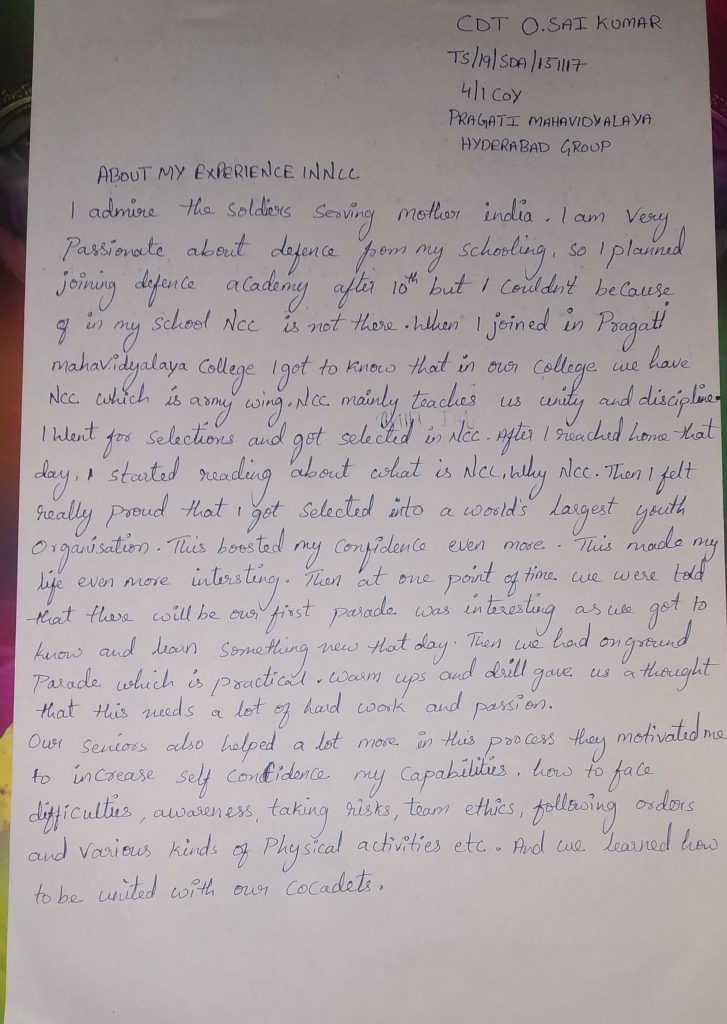 CDT O.SAI KUMAR
TS/19/SDA/151117
4/1 COY
PRAGATI MAHAVIDYALAYA
HYDERABAD GROUP
ABOUT MY EXPERIENCE IN NCC
I admire the soldiers serving mother india. I am very
Passionate about defence from my schooling, so I planned
joining defence academy after 10th but I couldn't because
of in my school Ncc is not there. When I joined in Pragati
mahavidyalaya College I got to know that in our college we have
Ncc which is army wing. Ncc mainly teaches us unity and discipline.
I went for selections and got selected in Ncc. After I reached home that
day, I started reading about what is Ncc, Why Ncc. Then I felt
really proud that I got selected into a world's largest youth
Organisation. This boosted my confidence even more. This made my
life even more intersting. Then at one point of time we were told
that there will be our first parade was interesting as we got to
know and learn something new that day. Then we had onground
Parade which is practical. warm ups and drill gave us a thought
that this needs a lot of hard work and passion.
Our seniors also helped a lot more in this process they motivated me
to increase self confidence my capabilities, how to face
difficulties, awareness, taking risks, team ethics, following orders
and various kinds of Physical activities etc. And we learned how
to be united with our cocadets.